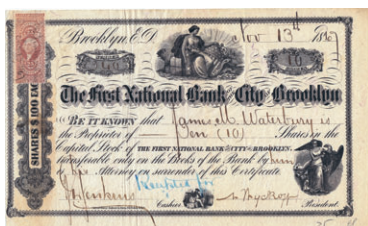 Brooklyn E.D. Nov 13th 1867
10 10
The First National Bank of the City of Brooklyn
BE IT KNOWN that James M. Waterbury is
the Proprietor of Ten (10) Shares in the
Capital Stock of THE FIRST NATIONAL BANK OF THE CITY OF BROOKLYN,
transferable only on the Books of the Bank by him
or his Attorney on surrender of this Certificate
Receipted for
Cashier President
SHARES $100 EACH